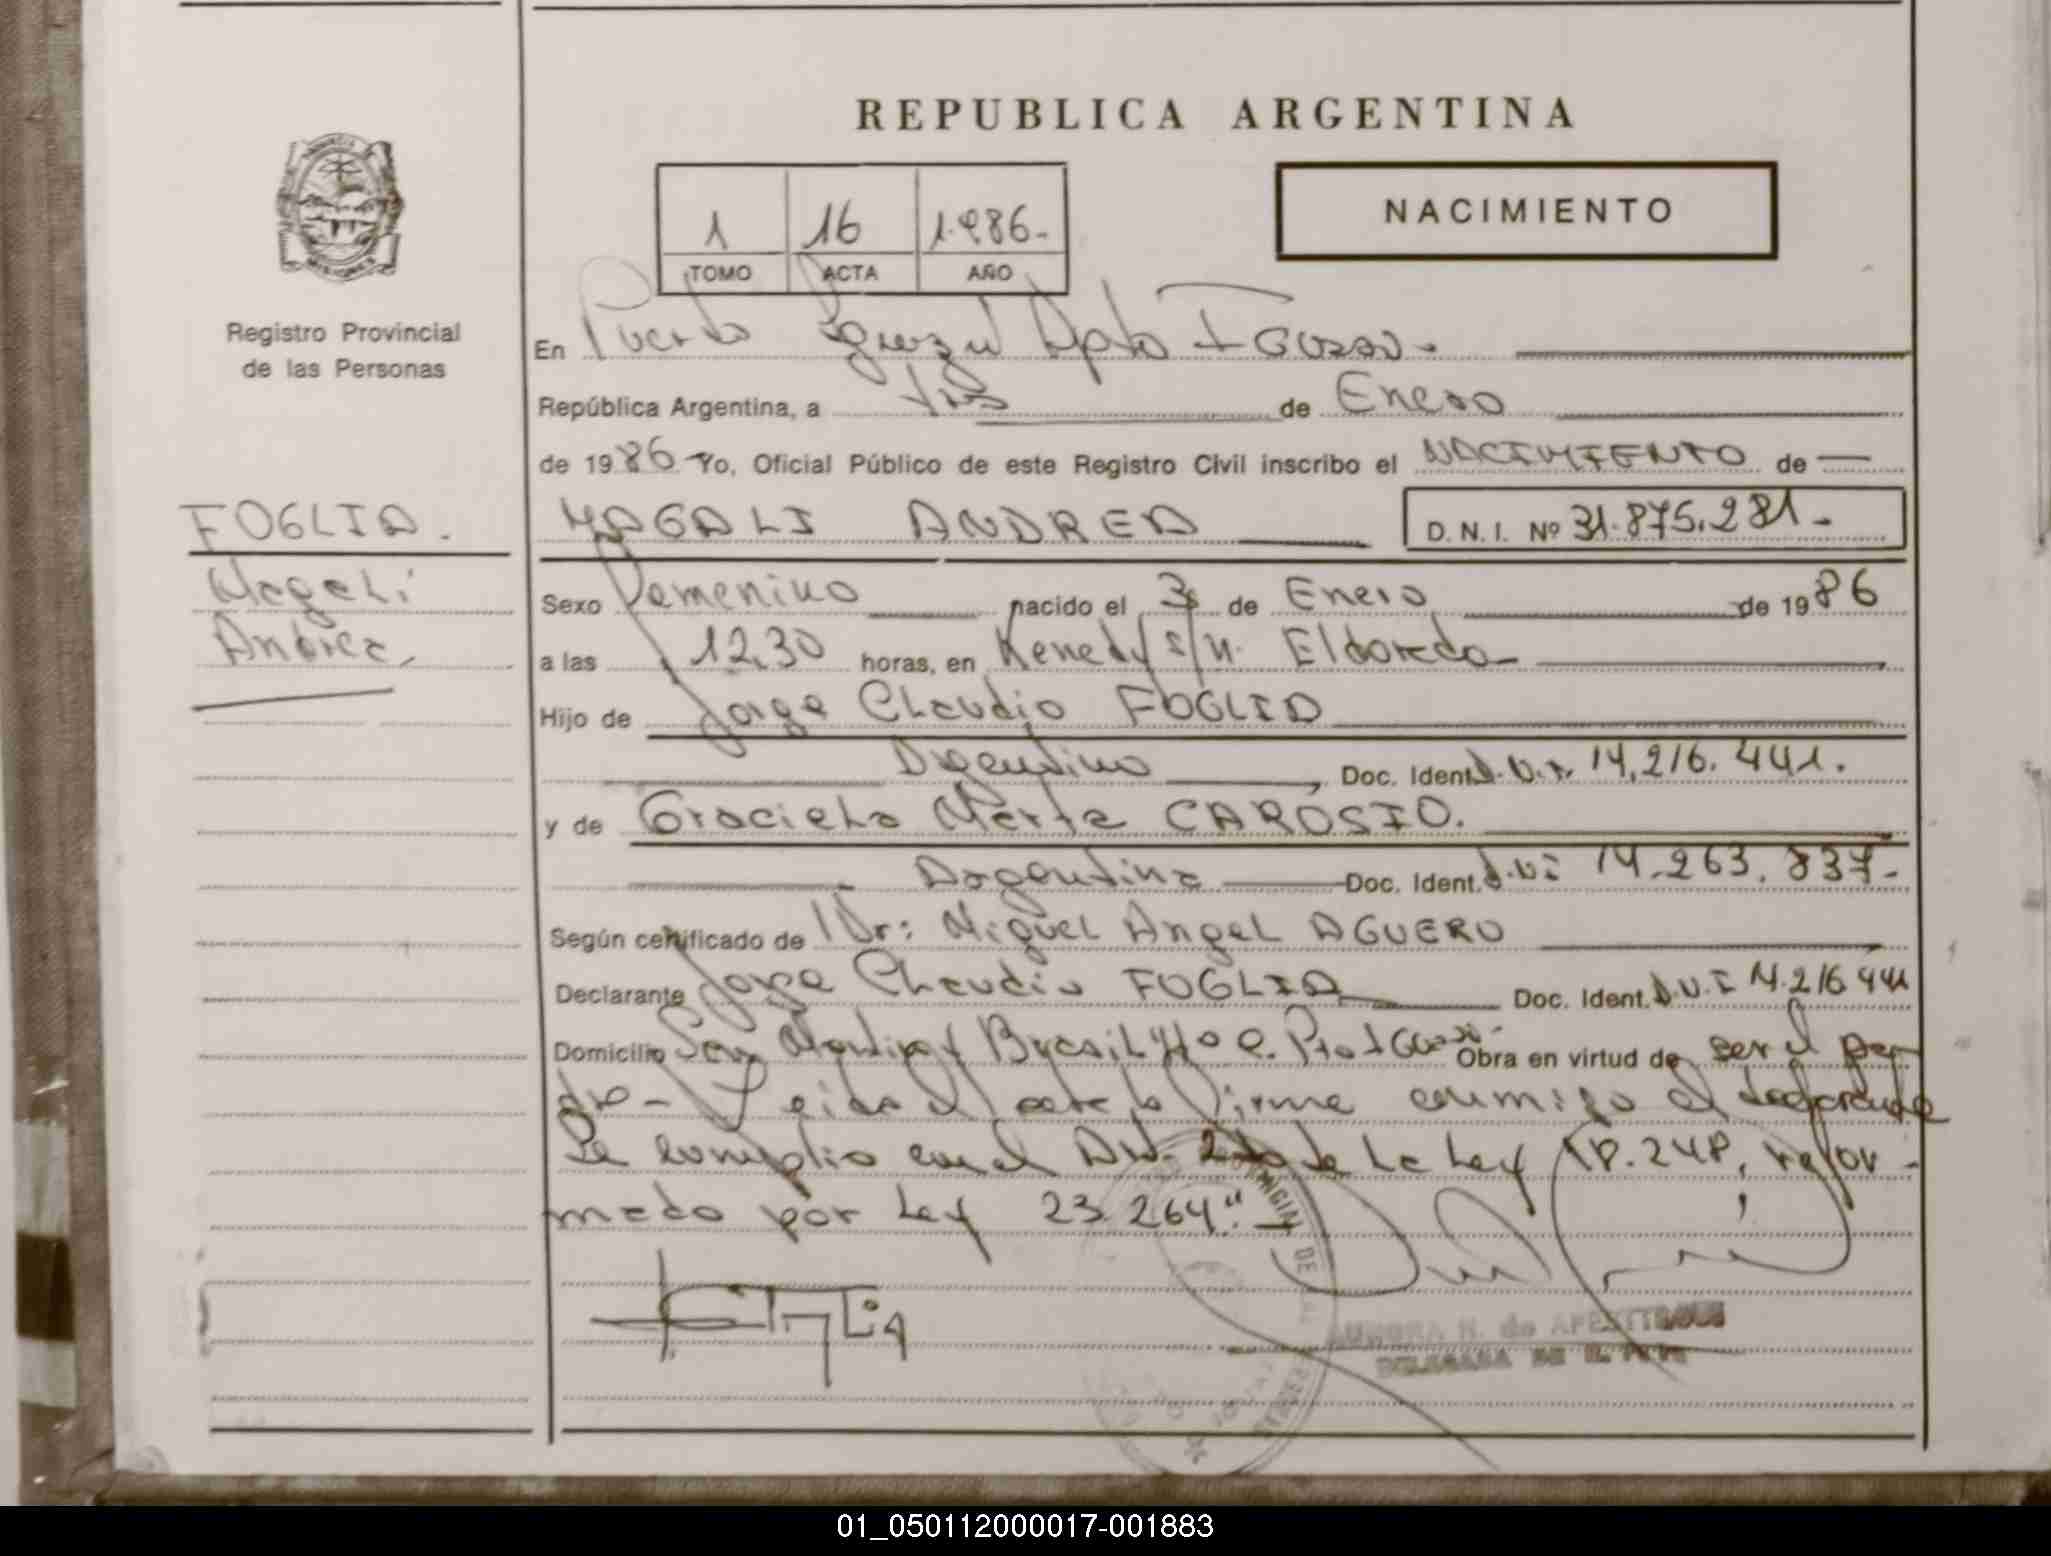 REPUBLICA ARGENTINA
NACIMIENTO
1 16 1.986.-
TOMO ACTA AÑO
Registro Provincial
de las Personas
En Puerto Iguazú Dpto IGUAZU.
República Argentina, a tres de Enero
de 1986 Yo, Oficial Público de este Registro Civil inscribo el NACIMIENTO de
FOGLIA.
Magali
Andrea.
MAGALI ANDREA
D. N. I. Nº 31.875.281.-
Sexo Femenino nacido el 3 de Enero de 1986
a las 12,30 horas, en Kenedy s/n. Eldorado
Hijo de Jorge Claudio FOGLIA
Argentino Doc. Ident. D.N.I. 14.216.441.
y de Graciela Marta CAROSIO.
Argentina Doc. Ident. D.N.I 14.263.837.-
Según certificado de Dr: Miguel Angel AGUERO
Declarante Jorge Claudio FOGLIA Doc. Ident. D.N.I 14.216 441
Domicilio San Martin y Brasil Obra en virtud de ser el pa-
dre- Leida el acta la firma conmigo el declarante
Se cumplio con el Art. de la Ley 18.248, refor-
mado por Ley 23.264".-
AURORA N. de
DELEGADA
01_050112000017-001883